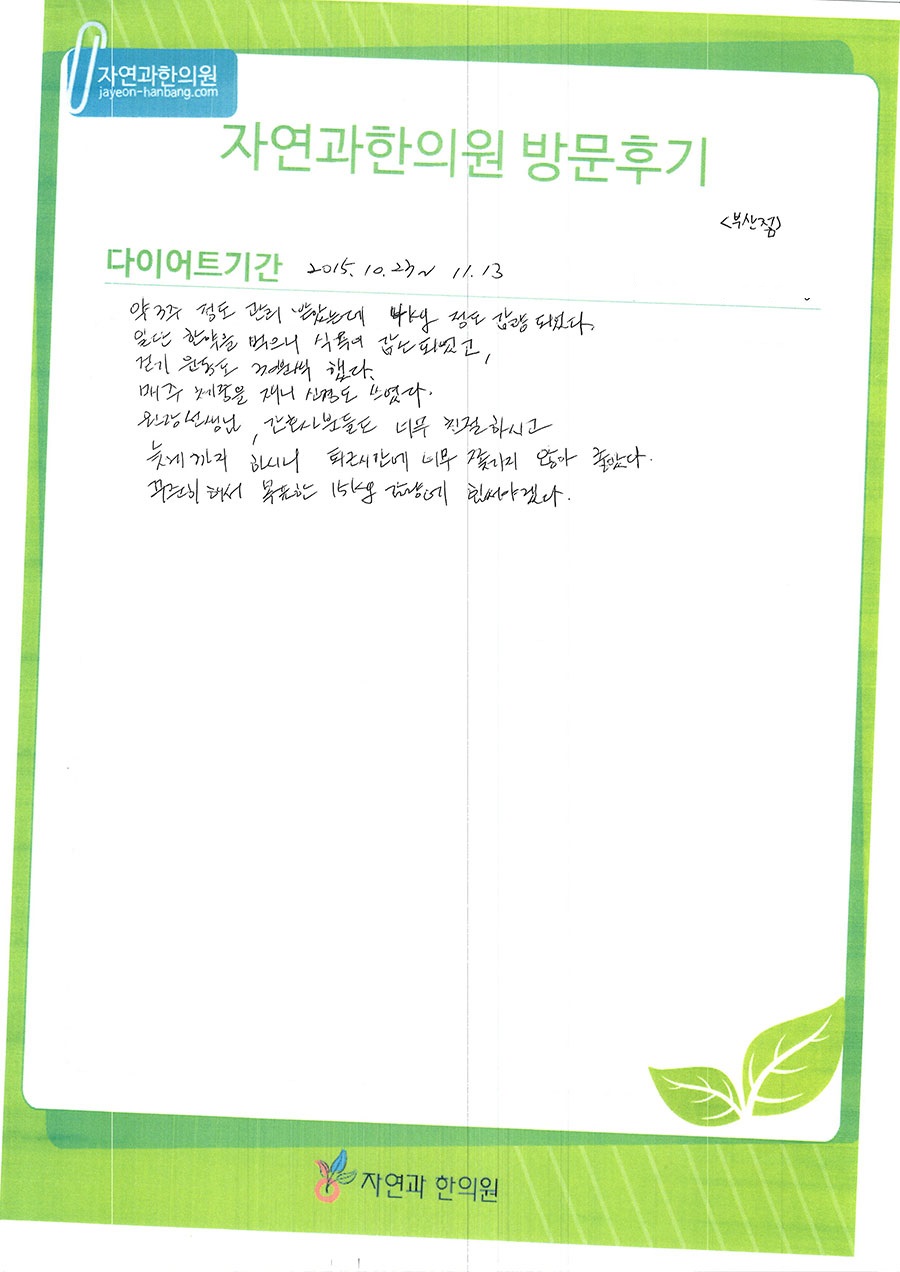 자연과한의원
jayeon-hanbang.com
자연과한의원 방문후기
<부산점>
다이어트기간 2015. 10. 23~ 11. 13
약 3주 정도 관리 받았는데 정도 감량 되었다.
일단 한약을 먹으니 식욕이 감소되었고,
걷기 운동도 30분씩 했다.
매주 체중을 재니 신경도 쓰였다.
원장선생님, 간호사분들도 너무 친절하시고
늦게까지 하시니 퇴근시간에 너무 쫓기지 않아 좋았다.
꾸준히 해서 목표한 15kg 감량에 힘써야겠다.
자연과 한의원